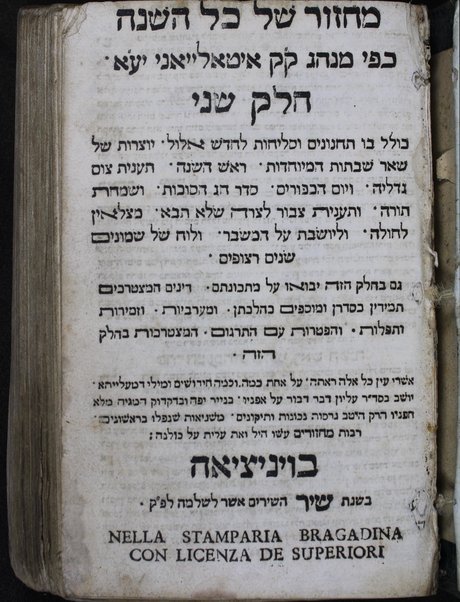 מחזור של כל השנה
כפי מנהג קק איטאלייאני יע״א
חלק שני
כולל בו תחנונים וסליחות לחדש אלול · יוצרות של
שאר שבתות המיוחדות · ראש השנה · תענית צום
גדליה · ויום הכפורים · סדר חג הסוכות · ושמחת
תורה · ותענית צבור לצרה שלא תבא · מצלאין
לחולה · וליושבת על המשבר · ולוח של שמונים
שנים רצופים ·
גם בחלק הזה יבואו על מתכונתם · דינים המצטרכים
תמידין כסדרן ומוספים כהלכתן · ומערביות · וזמירות
ותפלות · והפטרות עם התרגום · המצטרכות בחלק
הזה ·
אשרי עין כל אלה ראתה · על אחת כמה · וכמה חידושים ומילי דמעלייתא
יושב בסד״ר עליון דבר דבור על אפניו · בנייר יפה ובדקדוק המגיה מלא
חפניו הדק היטב גרסות נכונות ותיקונים · משגיאות שנפלו בראשונים ·
רבות מחזורים עשו חיל ואת עלית על כולנה :
בויניציאה
בשנת שיר השירים אשר לשלמה לפ״ק ·
NELLA STAMPARIA BRAGADINA
CON LICENZA DE SUPERIORI